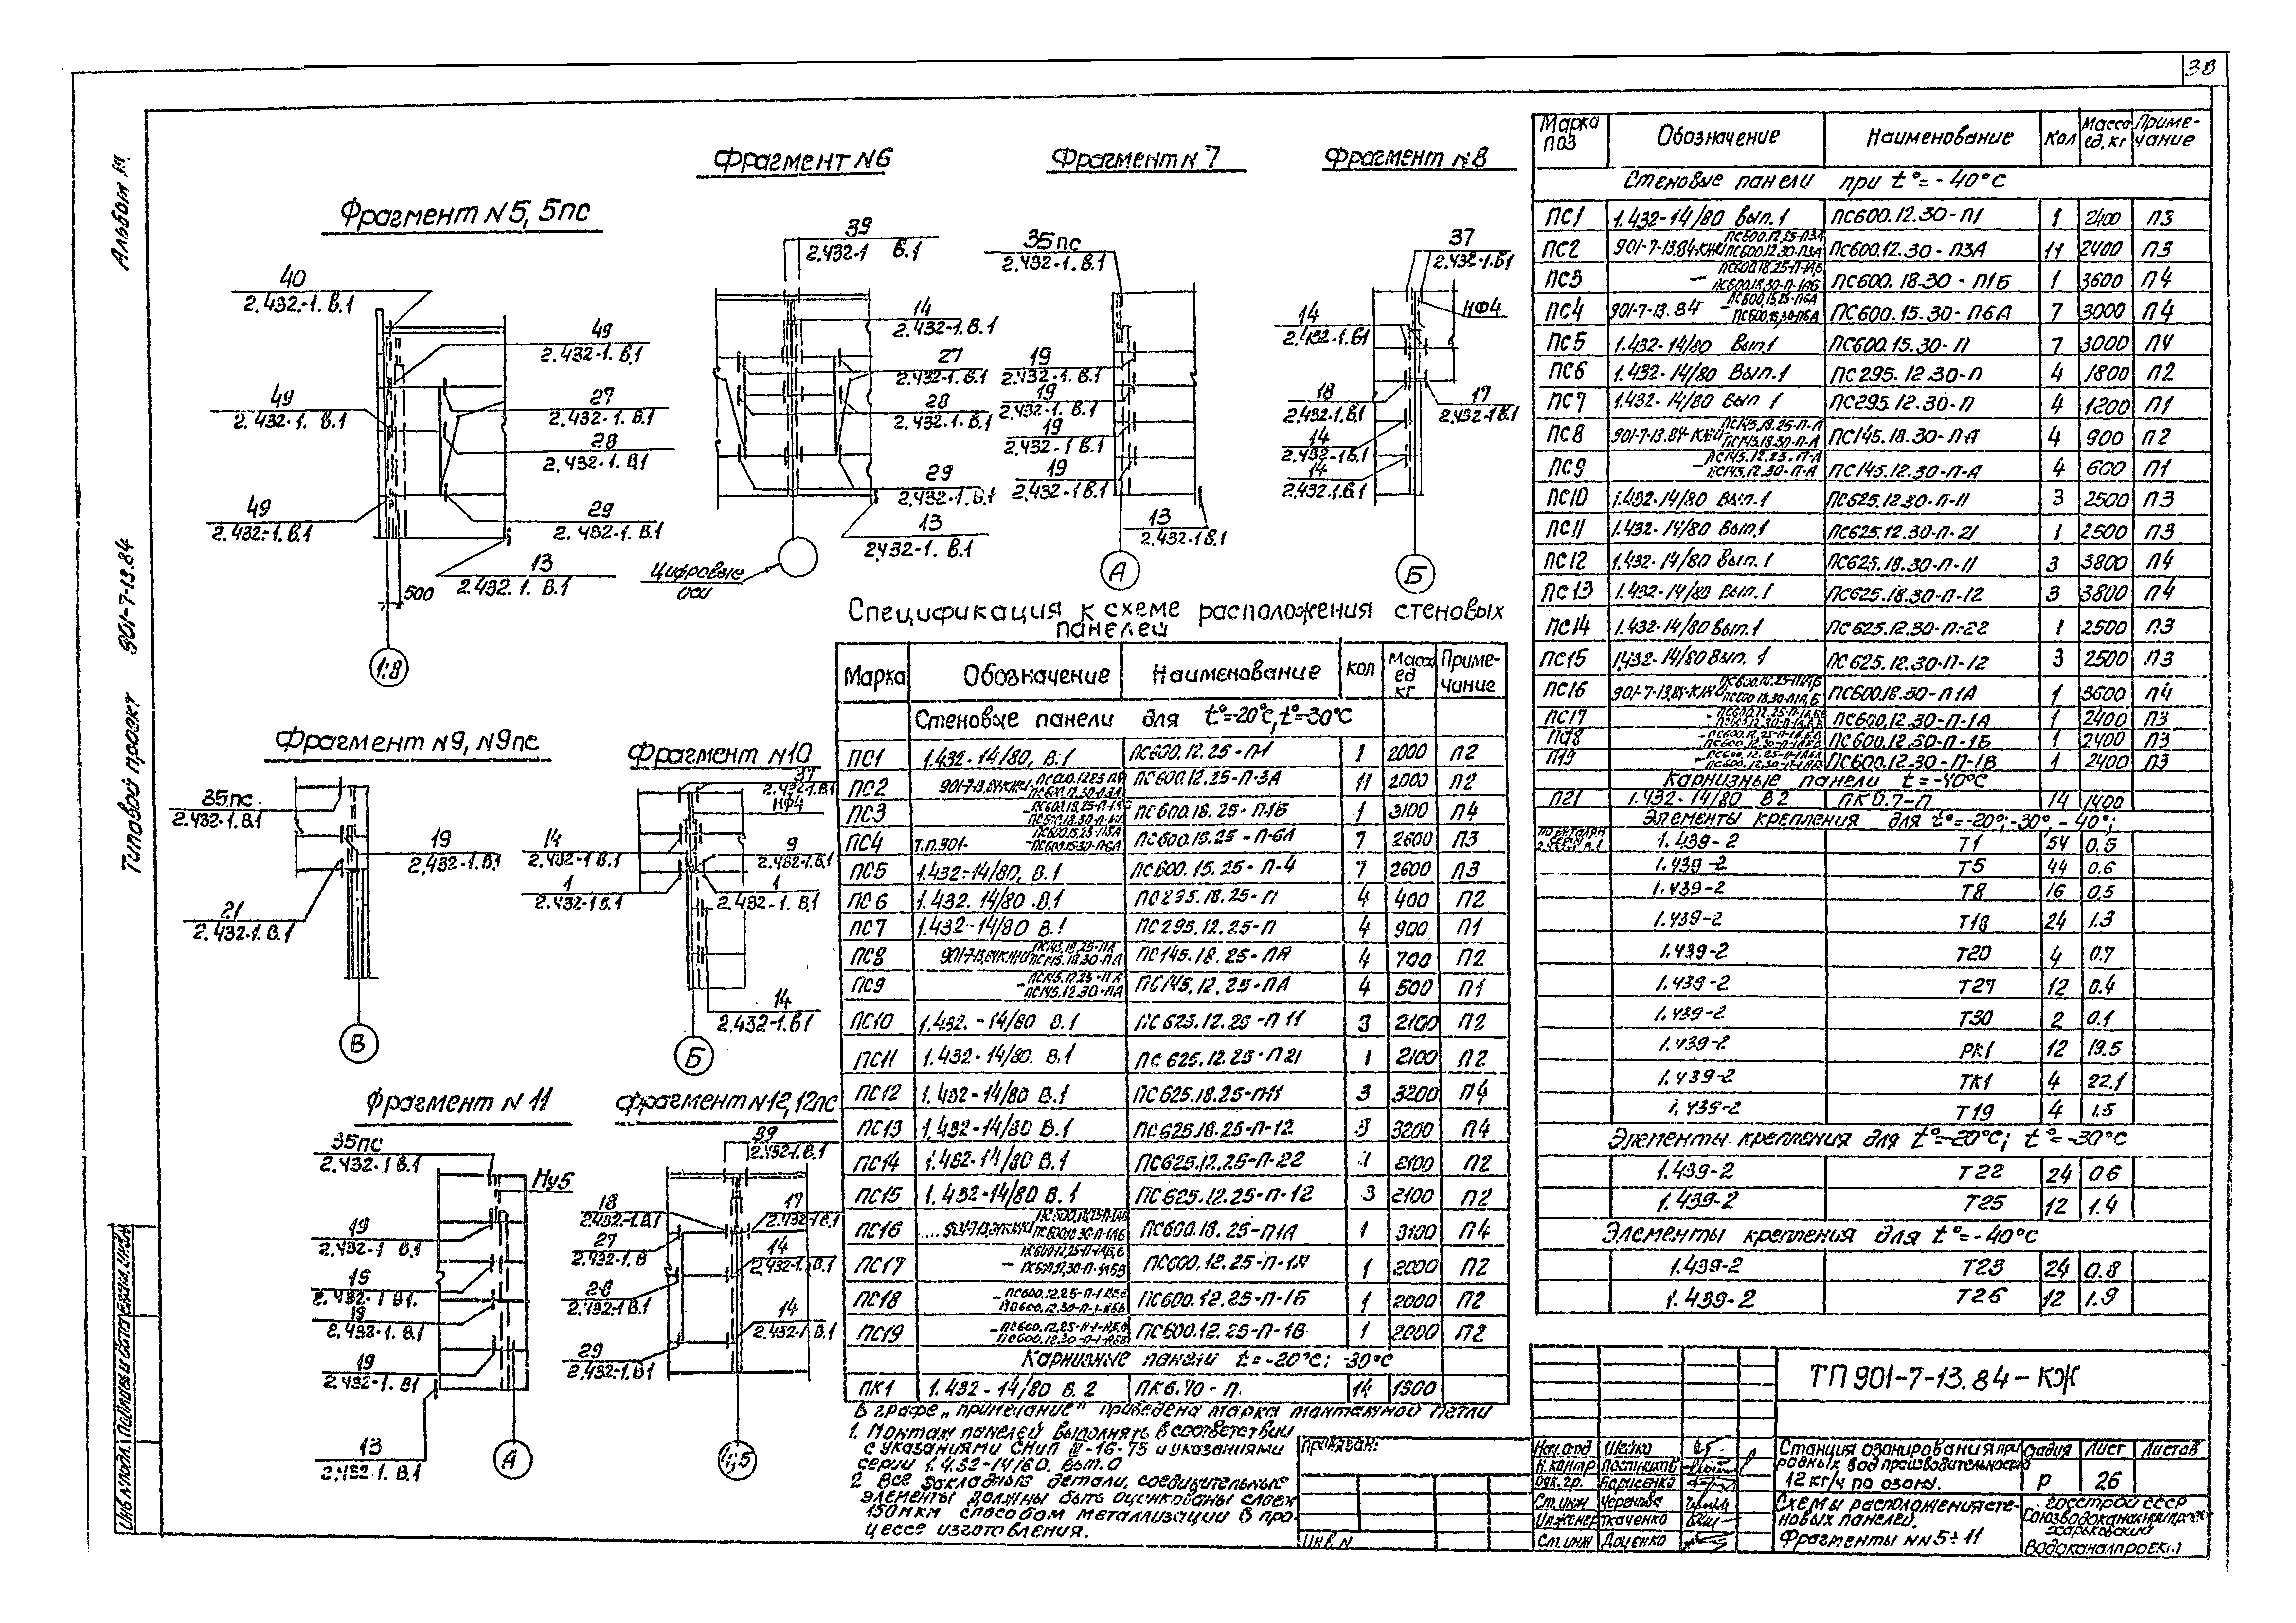 38
Альбом III
Типовой проект 901-7-13.84
Фрагмент N5, 5пс
40
2.432-1. В.1
49
2.432-1. В.1
49
2.432-1. В.1
27
2.432-1. В.1
28
2.432-1. В.1
49
2.432-1. В.1
29
2.432-1. В.1
13
2.432.1. В.1
500
1;8
Фрагмент N6
39
2.432-1 В.1
14
2.432-1. В.1
27
2.432-1. В.1
28
2.432-1. В.1
29
2.432-1. В.1
13
2.432-1. В.1
Цифровые
оси
Фрагмент N7
35пс
2.432-1. В.1
19
2.432-1. В.1
19
2.432-1. В.1
19
2.432-1 В.1
19
2.432-1 В.1
13
2.432-1 В.1
А
Фрагмент N8
37
2.432-1.В1
НФ4
14
2.432-1.В1
18
2.432-1.В.1
17
2.432-1В.1
14
2.432-1В.1
14
2.432.1.В.1
Б
Фрагмент N9, N9пс
35пс
2.432-1.В.1
19
2.432-1. В.1
21
2.432-1. В.1
В
Фрагмент N10
37
2.432-1.В1
НФ4
14
2.432-1 В.1
9
2.432-1. В.1
1
2.432-1 В.1
1
2.432-1. В.1
14
2.432-1. В1
Б
Фрагмент N11
35пс
2.432-1 В.1
Ну5
19
2.432-1 В.1
19
2.432-1 В1.
19
2.432-1. В.1
19
2.432-1. В1
13
2.432-1. В.1
А
Фрагмент N12, 12пс
39
2.432-1. В.1
18
2.432-1. В.1
17
2.432-1. В.1
27
2.432-1. В
14
2.432-1. В.1
28
2.432-1 В.1
14
2.432-1. В.1
29
2.432-1. В.1
4;5
Спецификация к схеме расположения стеновых
панелей
Марка Обозначение Наименование кол Масса ед кг Примечание
Стеновые панели для t°=-20°с, t°=-30°с
ПС1 1.432-14/80, В.1 ПС600.12.25-П1 1 2000 П2
ПС2 ПС600.12.25-П-3А 11 2000 П2
ПС3 ПС600.18.25-П1Б 1 3100 П4
ПС4 т.п.901- ПС600.15.25-П-6А 7 2600 П3
ПС5 1.432-14/80, В.1 ПС600.15.25-П-4 7 2600 П3
ПС6 1.432.14/80.В.1 ПС295.18.25-П 4 400 П2
ПС7 1.432-14/80 В.1 ПС295.12.25-П 4 900 П1
ПС8 ПС145.18.25-ПА 4 700 П2
ПС9 ПС145.12.25-ПА 4 500 П1
ПС10 1.432.-14/80 В.1 ПС625.12.25-П11 3 2100 П2
ПС11 1.432-14/80. В.1 ПС625.12.25-П21 1 2100 П2
ПС12 1.432-14/80 В.1 ПС625.18.25-П11 3 3200 П4
ПС13 1.432-14/80 В.1 ПС625.18.25-П-12 3 3200 П4
ПС14 1.432-14/80 В.1 ПС625.12.25-П-22 1 2100 П2
ПС15 1.432-14/80 В.1 ПС625.12.25-П-12 3 2100 П2
ПС16 ПС600.18.25-П1А 1 3100 П4
ПС17 ПС600.12.25-П-1А 1 2000 П2
ПС18 ПС600.12.25-П-1Б 1 2000 П2
ПС19 ПС600.12.25-П-1В 1 2000 П2
Карнизные панели t=-20°с; -30°с
ПК1 1.432-14/80 В.2 ПК6.70-П. 14 1500
В графе „примечание" приведена марка монтажной петли
1. Монтаж панелей выполнять в соответствии
с указаниями СНиП III-16-73 и указаниями
серии 1.432-14/80. вып.0
2 Все закладные детали, соединительные
элементы должны быть оцинкованы слоем
150мкм способом металлизации в про-
цессе изготовления.
Марка поз Обозначение Наименование Кол Масса ед.кг Примечание
Стеновые панели при t°=-40°С
ПС1 1.432-14/80 Вып.1 ПС600.12.30-П1 1 2400 П3
ПС2 901-7-13.84-КЖИ ПС600.12.30-П3А 11 2400 П3
ПС3 ПС600.18.30-П1Б 1 3600 П4
ПС4 901-7-13.84 ПС600.15.30-П6А 7 3000 П4
ПС5 1.432-14/80 Вып.1 ПС600.15.30-П 7 3000 П4
ПС6 1.432-14/80 Вып.1 ПС295.12.30-П 4 1800 П2
ПС7 1.432-14/80 Вып 1 ПС295.12.30-П 4 1200 П1
ПС8 901-7-13.84-КЖИ ПС145.18.30-ПА 4 900 П2
ПС9 ПС145.12.30-П-А 4 600 П1
ПС10 1.432-14/80 Вып.1 ПС625.12.30-П-11 3 2500 П3
ПС11 1.432-14/80 Вып.1 ПС625.12.30-П-21 1 2500 П3
ПС12 1.432-14/80 Вып.1 ПС625.18.30-П-11 3 3800 П4
ПС13 1.432-14/80 Вып.1 ПС625.18.30-П-12 3 3800 П4
ПС14 1.432-14/80 Вып.1 ПС625.12.30-П-22 1 2500 П.3
ПС15 1.432-14/80 Вып. 1 ПС625.12.30-П-12 3 2500 П3
ПС16 901-7-13.84-КЖИ ПС600.18.30-П1А 1 3600 П4
ПС17 ПС600.12.30-П-1А 1 2400 П3
ПС18 ПС600.12.30-П-1Б 1 2400 П3
П19 ПС600.12.30-П-1В 1 2400 П3
Карнизные панели t=-40°С
П21 1.432-14/80 В2 ПК6.7-П 14 1400
Элементы крепления для t°=-20°;-30°,-40°;
1.439-2 Т1 54 0.5
1.439-2 Т5 44 0.6
1.439-2 Т8 16 0.5
1.439-2 Т18 24 1.3
1.439-2 Т20 4 0.7
1.439-2 Т27 12 0.4
1.439-2 Т30 2 0.1
1.439-2 РК1 12 19.5
1.439-2 ТК1 4 22.1
1.439-2 Т19 4 1.5
Элементы крепления для t°=-20°С; t°=-30°С
1.439-2 Т22 24 0.6
1.439-2 Т25 12 1.4
Элементы крепления для t°=-40°С
1.439-2 Т23 24 0.8
1.439-2 Т26 12 1.9
ТП 901-7-13.84-КЖ
Привязан:
Инв.N
Нач.отд Шейко
Н.контр
Рук.гр. Борисенко
Ст.инж
Инженер Ткаченко
Ст.инж Доценко
Станция озонирования при-
родных вод производительностью
12кг/ч по озону.
Стадия Лист Листов
Р 26
Схемы расположения сте-
новых панелей.
Фрагменты NN5÷11
Госстрой СССР
Союзводоканалпроект
Харьковский
Водоканалпроект
Инв.N подл. Подпись и дата Взам.инв.N